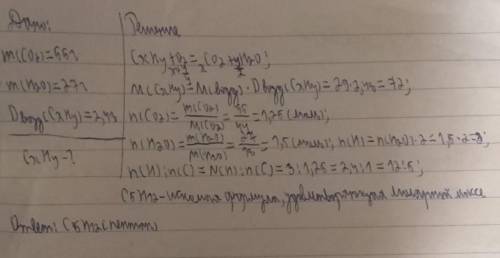 Дано:
Решение
m(CO2)=55г
m(H2O)=27г
Dвозд(CxHy)=2,48
CxHy-?
CxHy+O2=CO2+H2O;
M(CxHy)=M(возд)·Dвозд(CxHy)=29·2,48=72;
n(CO2)=m(CO2)/M(CO2)=55/44=1,25(моль);
n(H2O)=m(H2O)/M(H2O)=27/18=1,5(моль); n(H)=n(H2O)·2=1,5·2=3;
n(H):n(C)=N(H):n(C)=3:1,25=2,4:1=12:5;
C5H12-искомая формула, удовлетворяющая молярной массе
Ответ: C5H12 пентан